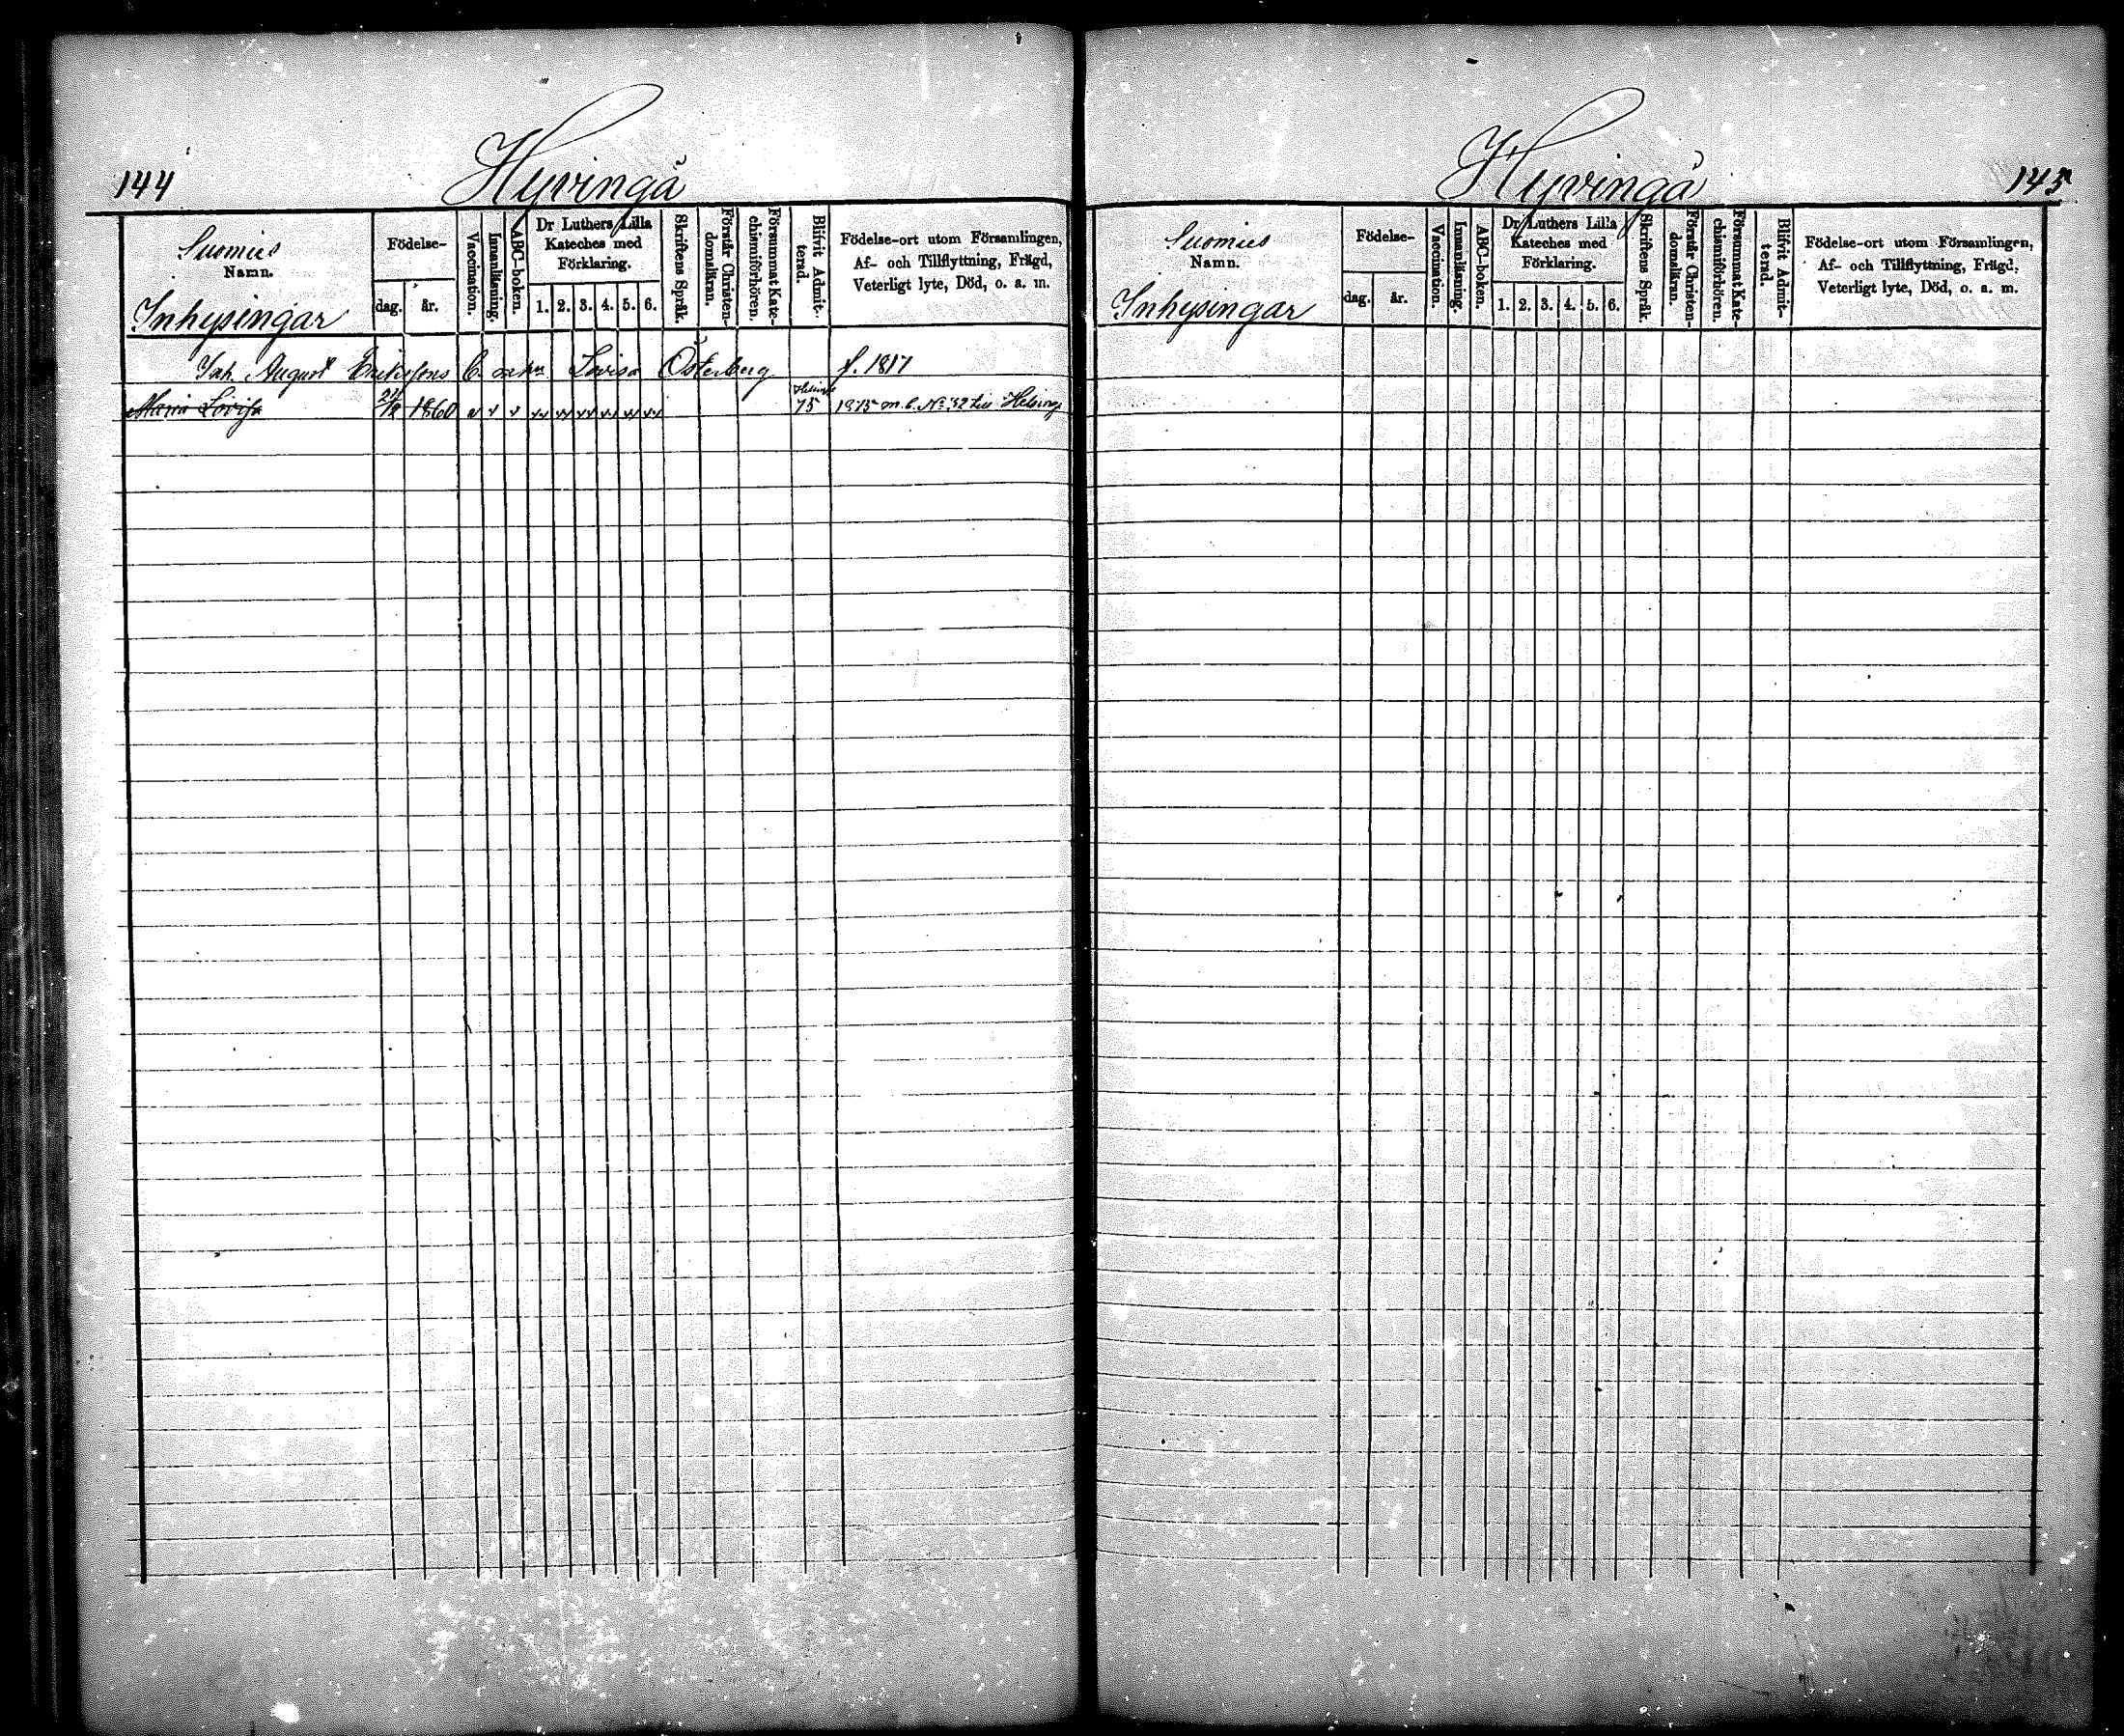 144
Hyvingå
Suomies
Namn.
Inhysingar
Födelse-
dag. år.
Vaccination.
Innanläsning.
ABC-boken.
Dr Luthers Lilla
Kateches med
Förklaring.
1. 2. 3. 4. 5. 6.
Skriftens Språk.
Förstår Christen-
domsläran.
Försummat Kate-
chismiförhören.
Blifvit Admit-
terad.
Födelse-ort utom Församlingen,
Af- och Tillflyttning, Frägd,
Veterligt lyte, Död, o. a. m.
Inh. August Erikssons Lovisa Österberg f. 1817
Maria Lovisa 1860 75 1875 m. b. No 32 till Helsing
Hyvingå
145
Suomies
Namn.
Inhysingar
Födelse-
dag. år.
Vaccination.
Innanläsning.
ABC-boken.
Dr Luthers Lilla
Kateches med
Förklaring.
1. 2. 3. 4. 5. 6.
Skriftens Språk.
Förstår Christen-
domsläran.
Försummat Kate-
chismiförhören.
Blifvit Admit-
terad.
Födelse-ort utom Församlingen,
Af- och Tillflyttning, Frägd,
Veterligt lyte, Död, o. a. m.